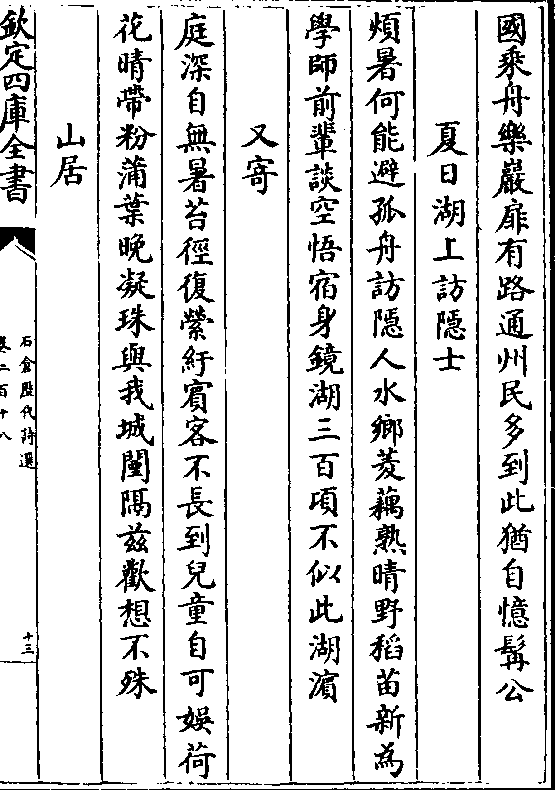 國乘舟樂巖扉有路通州民多到此猶自憶髯公
夏日湖上訪隱士
煩暑何能避孤舟訪隱人水鄉菱藕熟晴野稻苗新為
學師前輩談空悟宿身鏡湖三百頃不似此湖濵
又寄
庭深自無暑苔徑復縈紆賓客不長到兒童自可娱荷
花晴帶粉蒲葉晚凝珠與我城闉隔兹歡想不殊
山居
欽定四庫全書
石倉歴代詩選
卷二百十八
十三